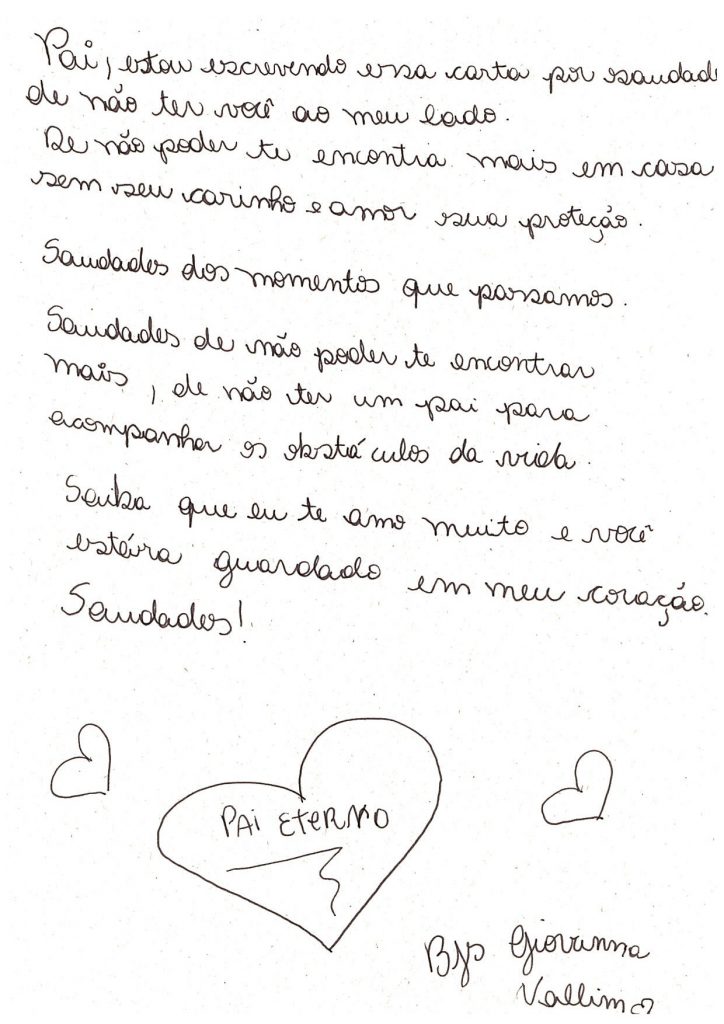 Pai, estou escrevendo essa carta por saudad
de não ter você ao meu lado.
De não poder te encontra mais em casa
sem seu carinho e amor sua proteção.
Saudades dos momentos que passamos.
Saudades de não poder te encontrar
mais, de não ter um pai para
acompanhar os obstáculos da vida.
Saiba que eu te amo muito e você
estáira guardado em meu coração.
Saudades!
PAi EteRNO
Bjs Giovanna
Vallim